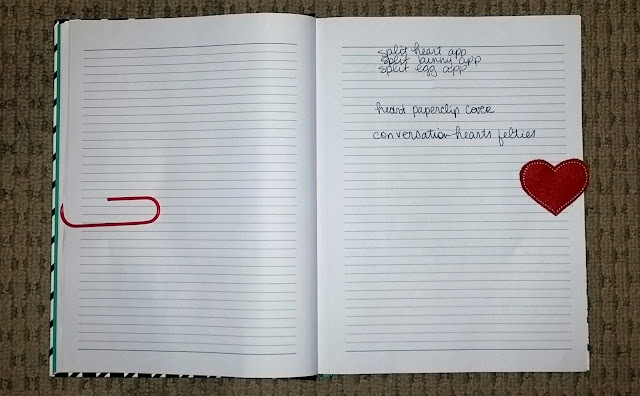 split heart app
split bunny app
split egg app
heart paperclip cover
conversation hearts felties